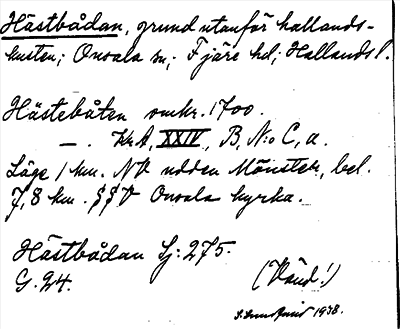 Hästbådan, grund utanför hallands-
kusten; Onsala sn; Fjäre hd; Hallands l.
Hästebåten omkr. 1700.
— . Kr A, XXIV, B, N:o C, a.
Läge 1 km. NV udden Mönster, bel.
7,8 km. SSV Onsala kyrka.
Hästbådan Sj: 275.
G. 24.
(Vänd!)
1938.